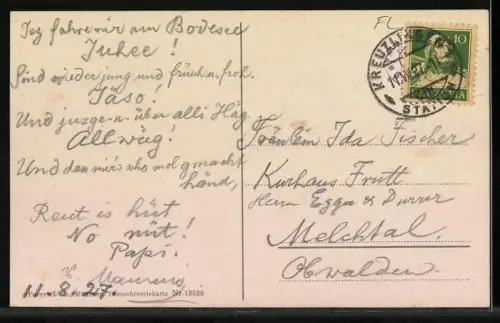 Jez fahre mir am Bodesee
Juhee!
Sönd wieder jung und früsch u. froh.
Täso!
Und juzge-n-über alli Häg
Allwäg!
Und das mir's cho mol gmacht
händ,
Reut is hüt
No nüt!
Papi.
11.8.27.
Nr. 13528
FL
KREUZLINGEN
10
Fräulein Ida Fischer
Kurhaus Frutt
Herrn Egger & Durrer
Melchtal
Obwalden.